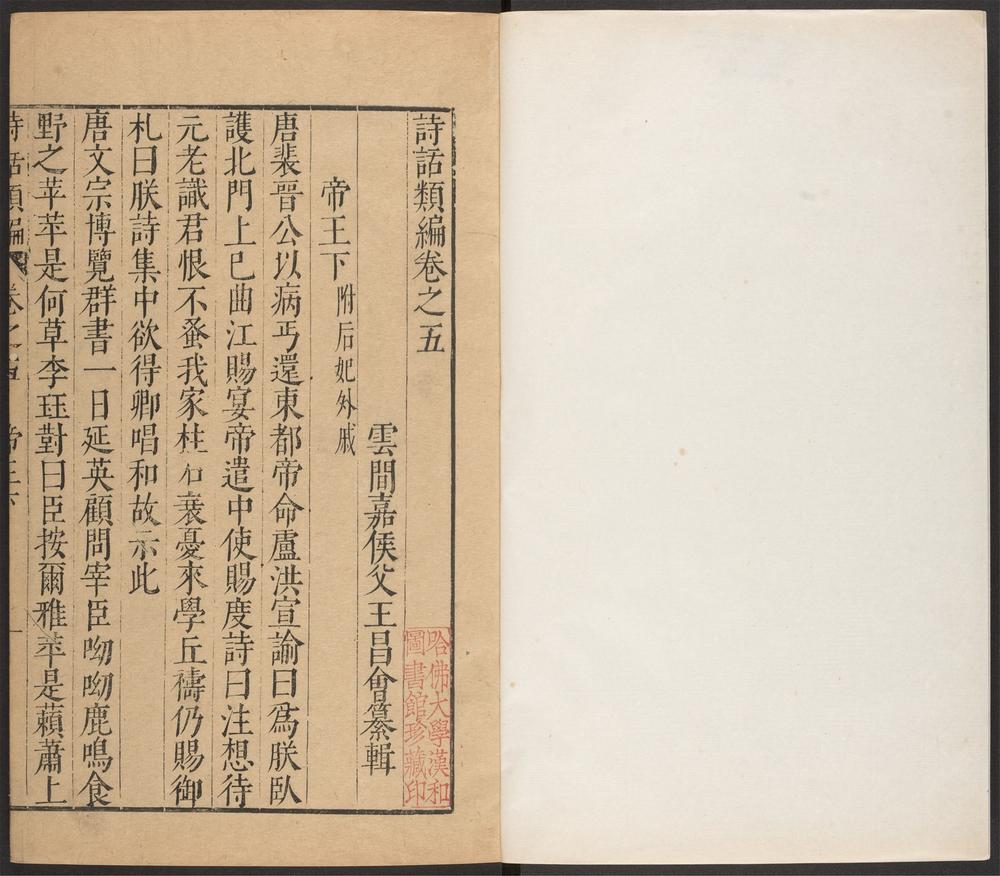 詩話類編卷之五
雲間嘉侯父王昌會纂輯
帝王下 附后妃外戚
唐裴晉公以病丐還東都帝命盧洪宣諭曰爲朕臥
護北門上巳曲江賜宴帝遣中使賜度詩曰注想待
元老識君恨不蚤我家柱石衰憂來學丘禱仍賜御
札曰朕詩集中欲得卿唱和故示此
唐文宗博覽群書一日延英顧問宰臣呦呦鹿鳴食
野之苹苹是何草李珏對曰臣按爾雅苹是藾蕭上
詩話類編 卷之五 帝王下 一
哈佛大學漢和
圖書館珍藏印